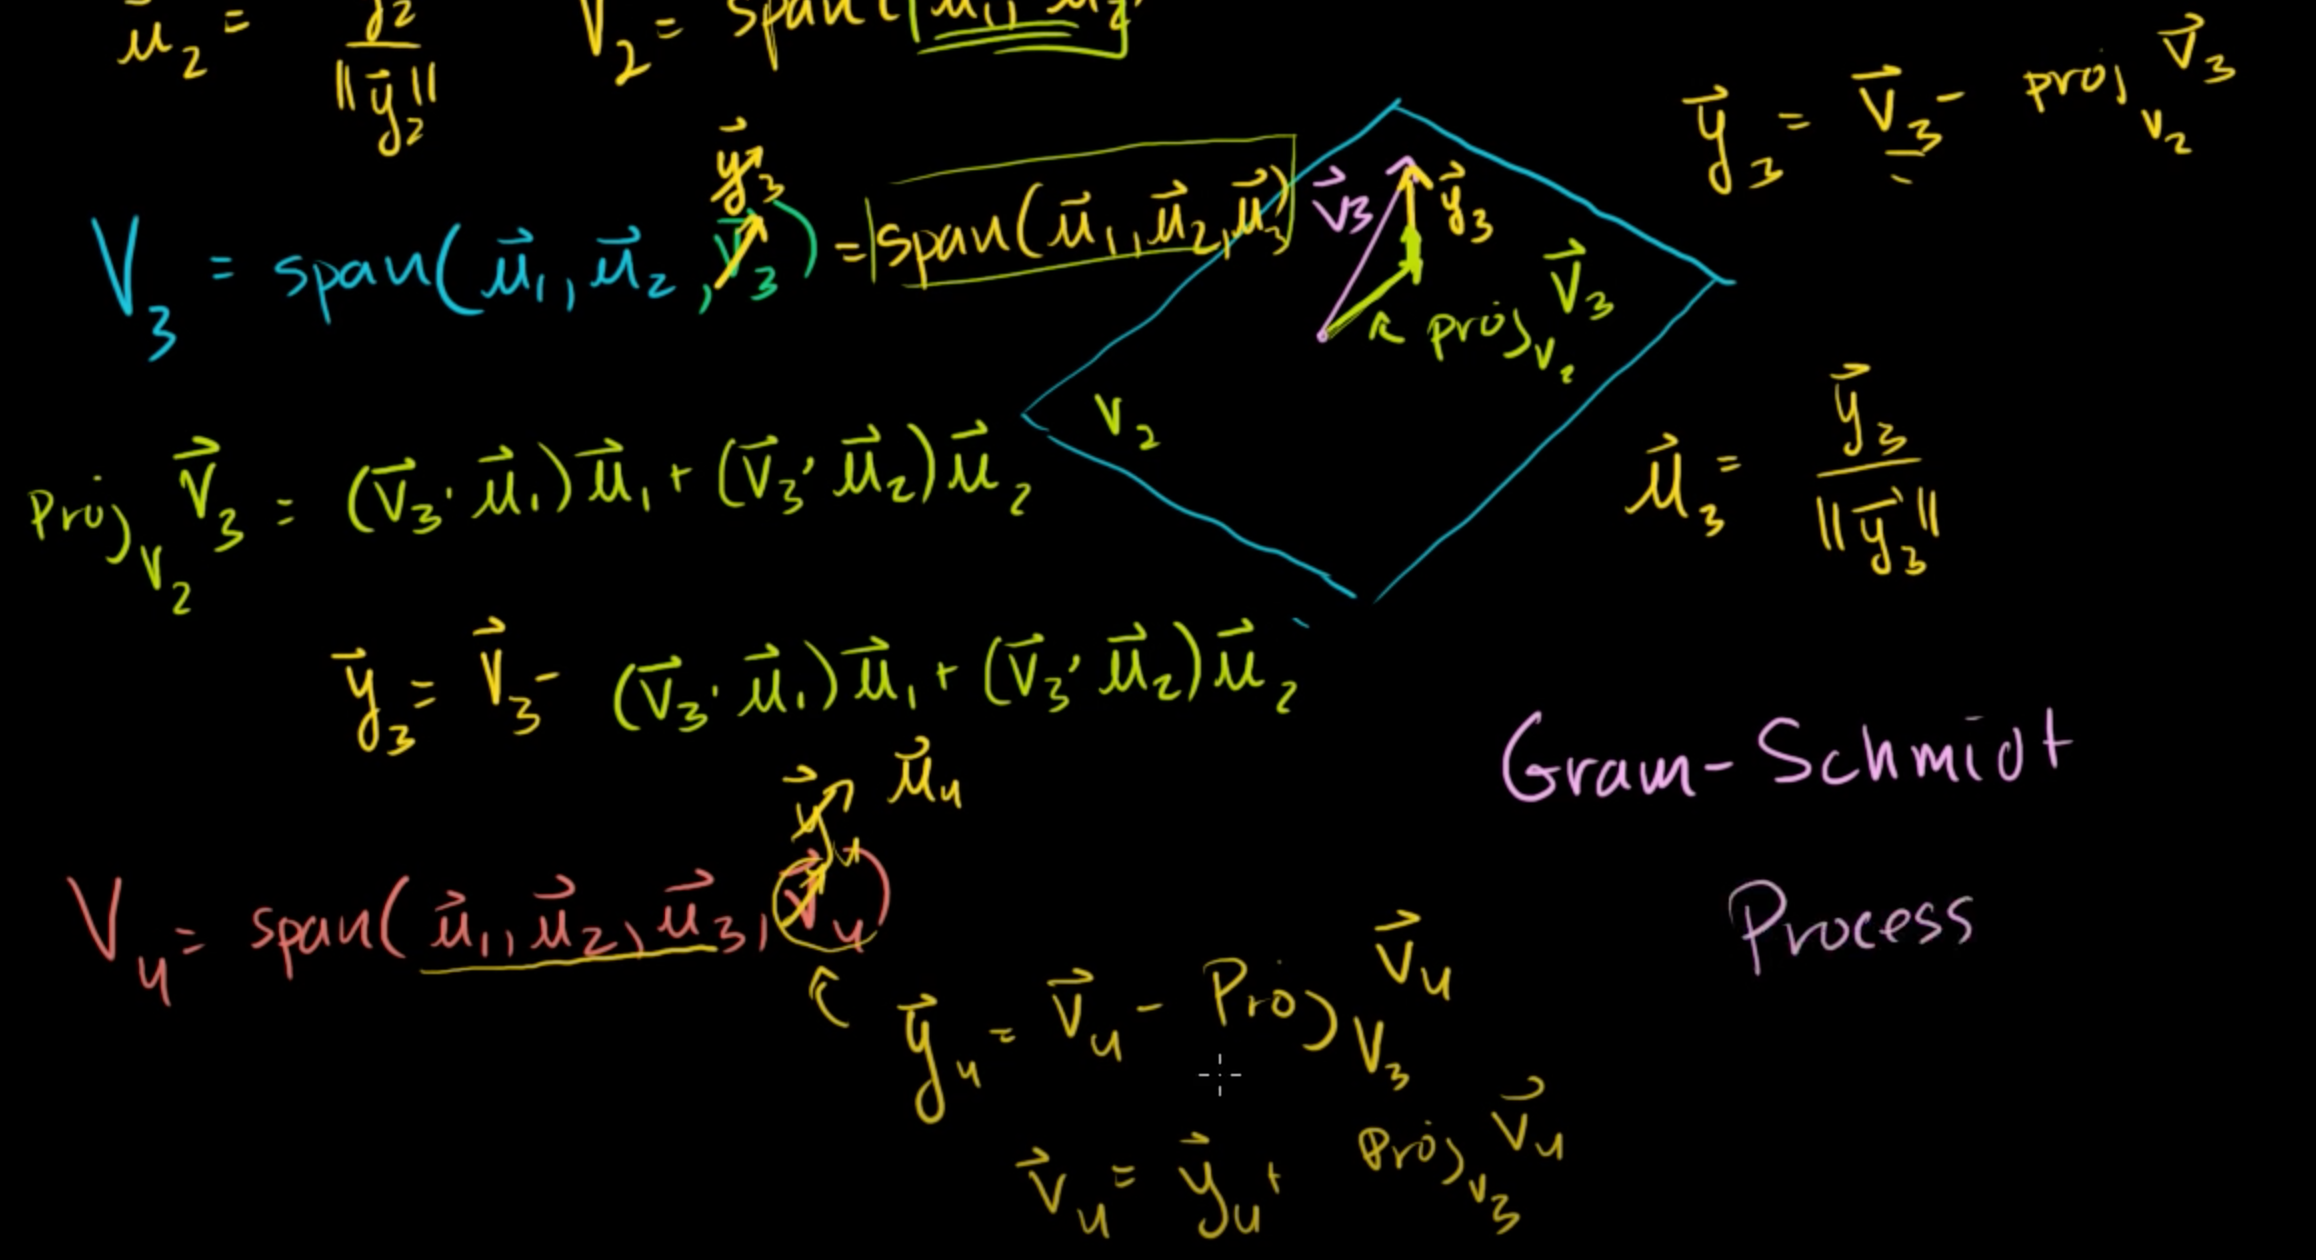 u⃗₂ = y⃗₂ / ‖y⃗₂‖   V₂ = span(u⃗₁, u⃗₂)
y⃗₃ = v⃗₃ - proj_V₂ v⃗₃
y⃗₃
V₃ = span(u⃗₁, u⃗₂, v⃗₃) = span(u⃗₁, u⃗₂, u⃗₃)
v⃗₃ y⃗₃
proj_V₂ v⃗₃
V₂
u⃗₃ = y⃗₃ / ‖y⃗₃‖
Proj_V₂ v⃗₃ = (v⃗₃·u⃗₁)u⃗₁ + (v⃗₃·u⃗₂)u⃗₂
y⃗₃ = v⃗₃ - (v⃗₃·u⃗₁)u⃗₁ + (v⃗₃·u⃗₂)u⃗₂
Gram-Schmidt
Process
y⃗₄ u⃗₄
V₄ = span(u⃗₁, u⃗₂, u⃗₃, v⃗₄)
y⃗₄ = v⃗₄ - Proj_V₃ v⃗₄
v⃗₄ = y⃗₄ + Proj_V₃ v⃗₄